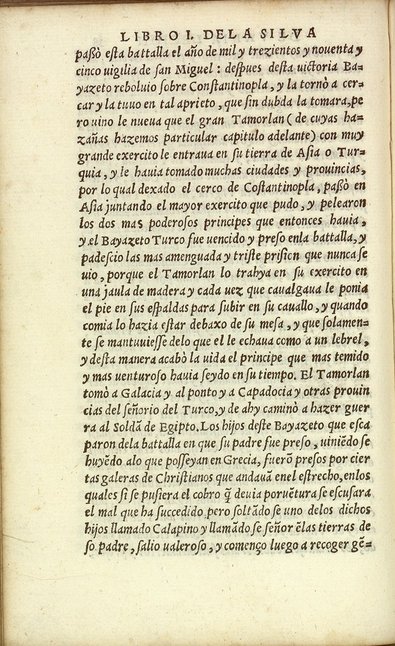 LIBRO I. DE LA SILVA
paßò esta batalla el año de mil y trezientos y nouenta y
cinco vigilia de san Miguel : despues desta victoria Ba-
yazeto reboluio sobre Constantinopla, y la tornò a cer-
car y la tuuo en tal aprieto, que sin dubda la tomara, pe
ro vino le nueua que el gran Tamorlan ( de cuyas ha-
zañas hazemos particular capitulo adelante) con muy
grande exercito le entraua en su tierra de Asia o Tur-
quia, y le hauia tomado muchas ciudades y prouincias,
por lo qual dexado el cerco de Costantinopla, paßò en
Asia juntando el mayor exercito que pudo, y pelearon
los dos mas poderosos principes que entonces hauia,
y el Bayazeto Turco fue uencido y preso enla batalla, y
padescio las mas amenguada y triste prision que nunca se
uio, porque el Tamorlan lo trahya en su exercito en
una jaula de madera y cada vez que caualgaua le ponia
el pie en sus espaldas para subir en su cauallo, y quando
comia lo hazia estar debaxo de su mesa, y que solamen-
te se mantuuiesse delo que el le echaua como a un lebrel,
y desta manera acabò la vida el principe que mas temido
y mas venturoso hauia seydo en su tiempo. El Tamorlan
tomò a Galacia y al ponto y a Capadocia y otras prouin
cias del señorio del Turco, y de ahy caminò a hazer gue
rra al Soldã de Egipto. Los hijos deste Bayazeto que esca
paron dela batalla en que su padre fue preso, uiniẽdo se
huyẽdo alo que posseyan en Grecia, fuerõ presos por cier
tas galeras de Christianos que andauã enel estrecho, enlos
quales si se pusiera el cobro q̃ deuia poruẽtura se escusara
el mal que ha succedido pero soltãdo se uno delos dichos
hijos llamado Calapino y llamãdo se señor ẽlas tierras de
so padre, salio valeroso, y començo luego a recoger gẽ-